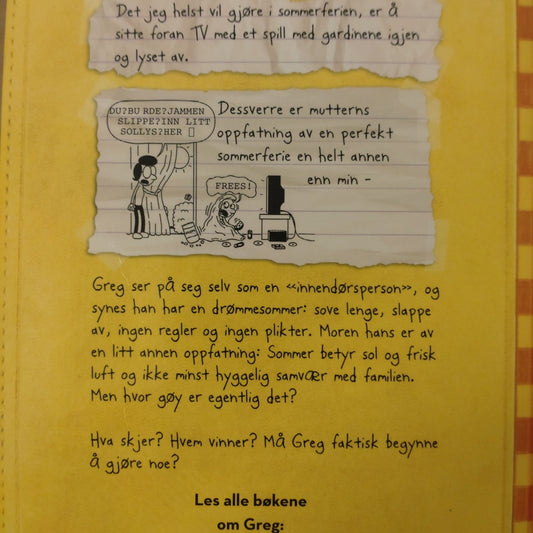 Det jeg helst vil gjøre i sommerferien, er å
sitte foran TV med et spill med gardinene igjen
og lyset av.
DU?BU RDE?JAMMEN
SLIPPE?INN LITT
SOLLYS?HER □
FREES!
Dessverre er mutterns
oppfatning av en perfekt
sommerferie en helt annen
enn min -
Greg ser på seg selv som en «innendørsperson», og
synes han har en drømmesommer: sove lenge, slappe
av, ingen regler og ingen plikter. Moren hans er av
en litt annen oppfatning: Sommer betyr sol og frisk
luft og ikke minst hyggelig samvær med familien.
Men hvor gøy er egentlig det?
Hva skjer? Hvem vinner? Må Greg faktisk begynne
å gjøre noe?
Les alle bøkene
om Greg: